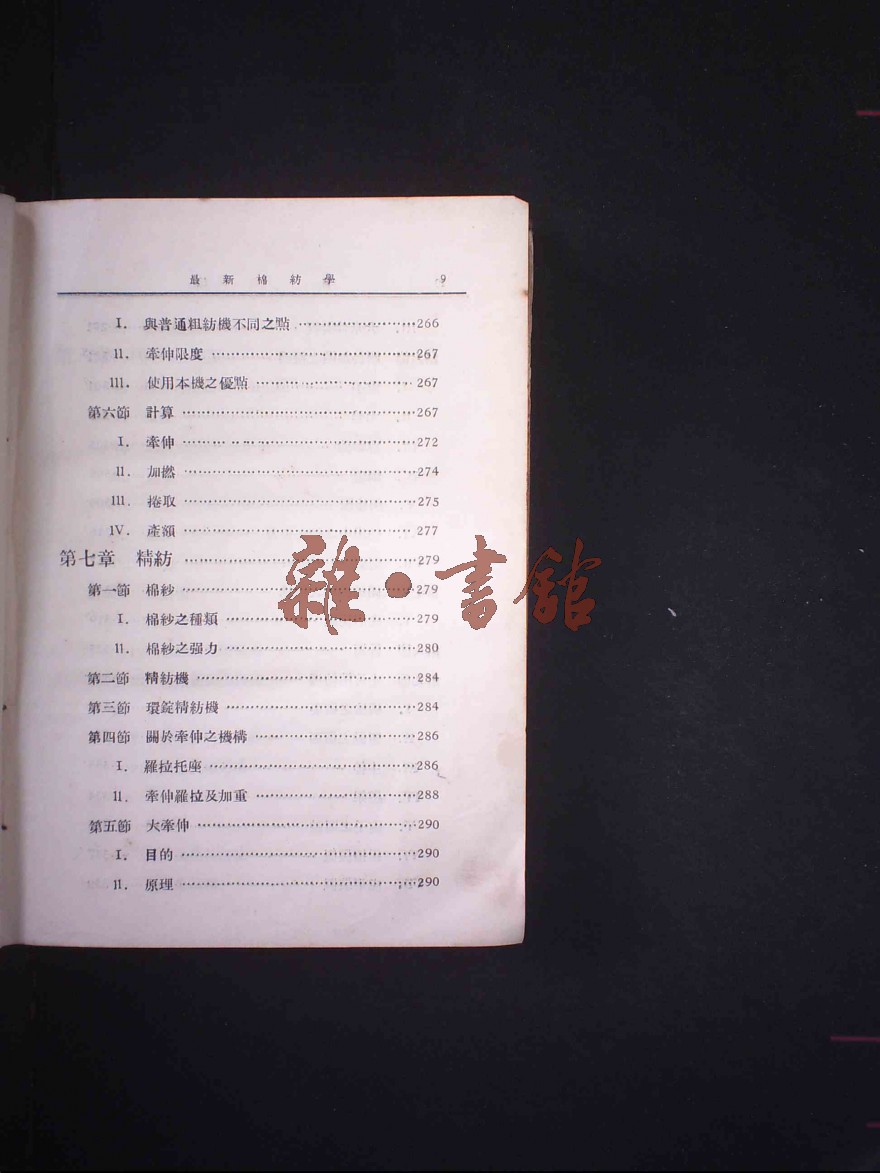 最新棉紡學 9
I. 與普通粗紡機不同之點 ………………… 266
II. 牽伸限度 ………………… 267
III. 使用本機之優點 ………………… 267
第六節 計算 ………………… 267
I. 牽伸 ………………… 272
II. 加撚 ………………… 274
III. 捲取 ………………… 275
IV. 產額 ………………… 277
第七章 精紡 ………………… 279
第一節 棉紗 ………………… 279
I. 棉紗之種類 ………………… 279
II. 棉紗之强力 ………………… 280
第二節 精紡機 ………………… 284
第三節 環錠精紡機 ………………… 284
第四節 關於牽伸之機構 ………………… 286
I. 羅拉托座 ………………… 286
II. 牽伸羅拉及加重 ………………… 288
第五節 大牽伸 ………………… 290
I. 目的 ………………… 290
II. 原理 ………………… 290
雜·書館